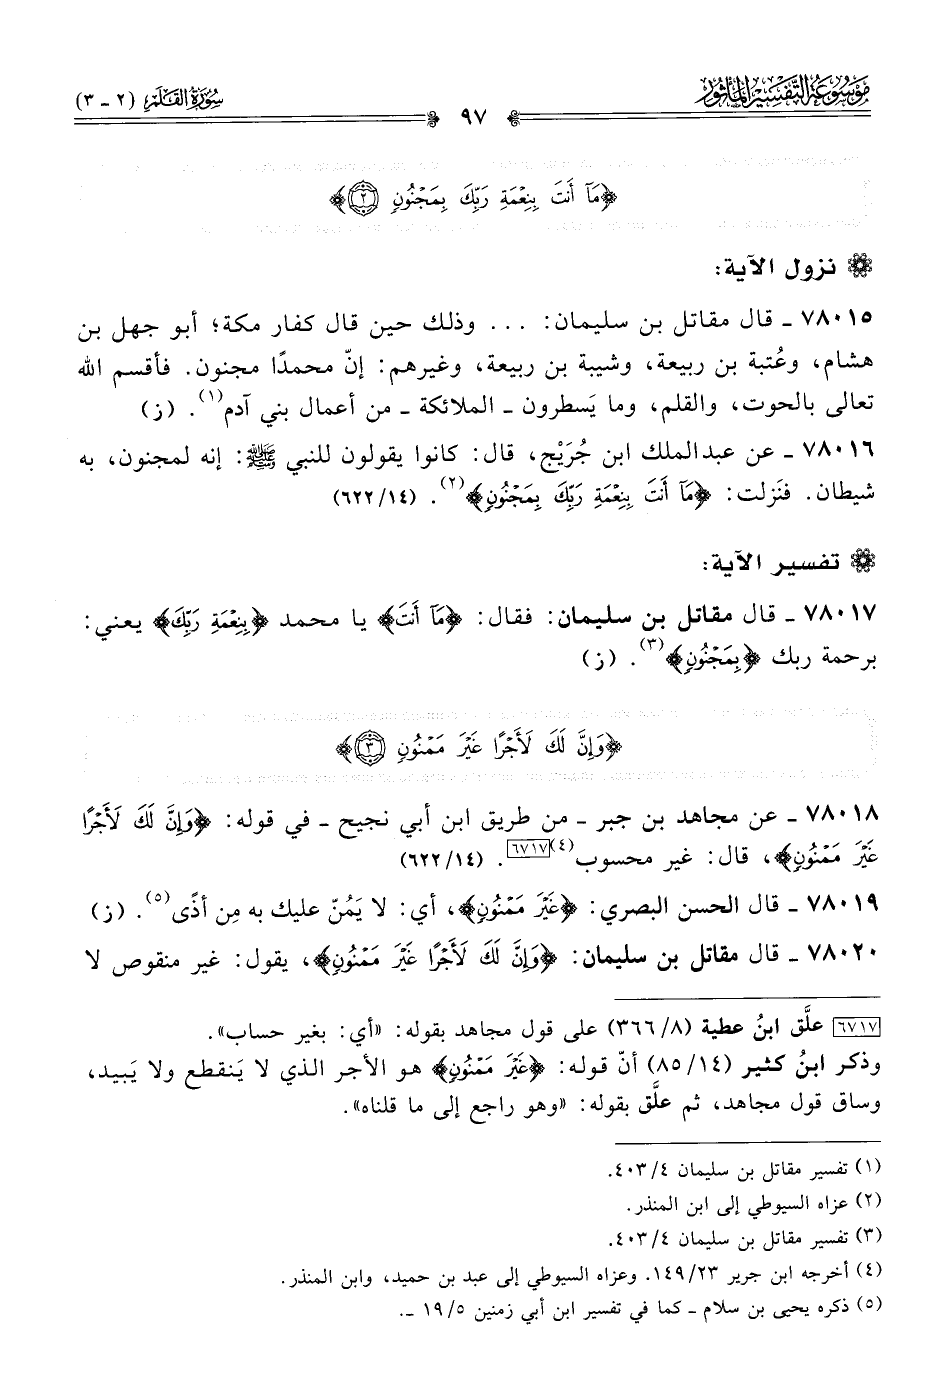 مَوْسُوعَةُ التَّفْسِيرِ المَأْثُور
سُورَةُ القَلَمِ (٢ - ٣)
٩٧
﴿مَآ أَنتَ بِنِعْمَةِ رَبِّكَ بِمَجْنُونٍ ٢﴾
نزول الآية:
٧٨٠١٥ ـ قال مقاتل بن سليمان: ... وذلك حين قال كفار مكة؛ أبو جهل بن
هشام، وعُتبة بن ربيعة، وشيبة بن ربيعة، وغيرهم: إنّ محمدًا مجنون. فأقسم الله
تعالى بالحوت، والقلم، وما يَسطرون ـ الملائكة ـ من أعمال بني آدم(١). (ز)
٧٨٠١٦ ـ عن عبدالملك ابن جُرَيْج، قال: كانوا يقولون للنبي ﷺ: إنه لمجنون، به
شيطان. فنَزلت: ﴿مَآ أَنتَ بِنِعْمَةِ رَبِّكَ بِمَجْنُونٍ﴾(٢). (١٤/ ٦٢٢)
تفسير الآية:
٧٨٠١٧ ـ قال مقاتل بن سليمان: فقال: ﴿مَآ أَنتَ﴾ يا محمد ﴿بِنِعْمَةِ رَبِّكَ﴾ يعني:
برحمة ربك ﴿بِمَجْنُونٍ﴾(٣). (ز)
﴿وَإِنَّ لَكَ لَأَجْرًا غَيْرَ مَمْنُونٍ ٣﴾
٧٨٠١٨ ـ عن مجاهد بن جبر ـ من طريق ابن أبي نجيح ـ في قوله: ﴿وَإِنَّ لَكَ لَأَجْرًا
غَيْرَ مَمْنُونٍ﴾، قال: غير محسوب(٤)[٦٧١٧]. (١٤/ ٦٢٢)
٧٨٠١٩ ـ قال الحسن البصري: ﴿غَيْرَ مَمْنُونٍ﴾، أي: لا يَمُنّ عليك به مِن أذًى(٥). (ز)
٧٨٠٢٠ ـ قال مقاتل بن سليمان: ﴿وَإِنَّ لَكَ لَأَجْرًا غَيْرَ مَمْنُونٍ﴾، يقول: غير منقوص لا
[٦٧١٧] علَّق ابنُ عطية (٨/ ٣٦٦) على قول مجاهد بقوله: «أي: بغير حساب».
وذكر ابنُ كثير (١٤/ ٨٥) أنّ قوله: ﴿غَيْرَ مَمْنُونٍ﴾ هو الأجر الذي لا يَنقطع ولا يَبيد،
وساق قول مجاهد، ثم علَّق بقوله: «وهو راجع إلى ما قلناه».
(١) تفسير مقاتل بن سليمان ٤/ ٤٠٣.
(٢) عزاه السيوطي إلى ابن المنذر.
(٣) تفسير مقاتل بن سليمان ٤/ ٤٠٣.
(٤) أخرجه ابن جرير ٢٣/ ١٤٩. وعزاه السيوطي إلى عبد بن حميد، وابن المنذر.
(٥) ذكره يحيى بن سلام ـ كما في تفسير ابن أبي زمنين ٥/ ١٩ ـ.